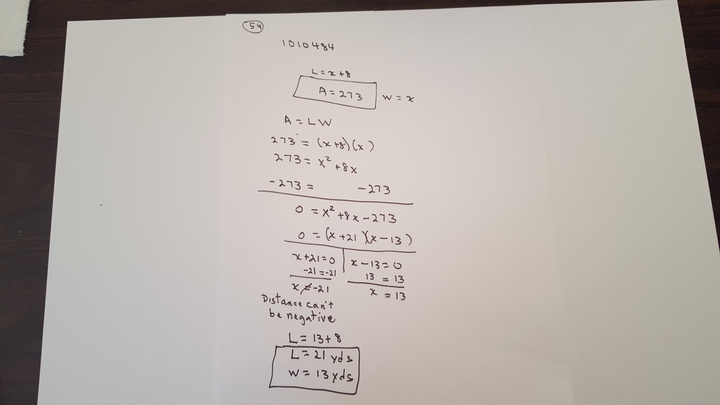 54
1010484
L = x + 8
A = 273
W = x
A = L W
273 = (x+8)(x)
273 = x² + 8x
-273 = -273
0 = x² + 8x - 273
0 = (x + 21)(x - 13)
x + 21 = 0
x - 13 = 0
-21 = -21
13 = 13
x ≠ -21
x = 13
Distance can't
be negative
L = 13 + 8
L = 21 yds
W = 13 yds